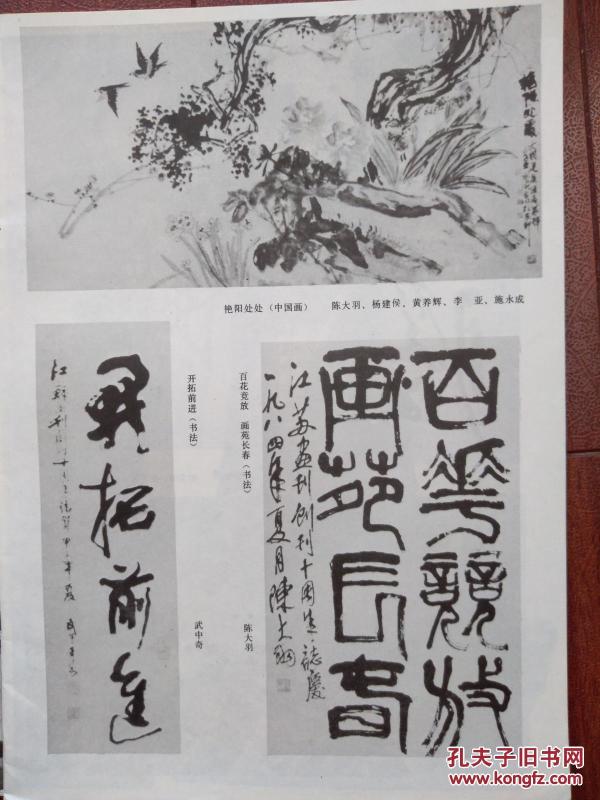 艳阳处处
艳阳处处（中国画） 陈大羽、杨建侯、黄养辉、李 亚、施永成
百花竞放
画苑长春
江苏画刊创刊十周年志庆
一九八四年夏月陈大羽
百花竞放 画苑长春（书法）
陈大羽
开拓前进（书法）
武中奇
开拓前进
孔夫子旧书网
www.kongfz.com